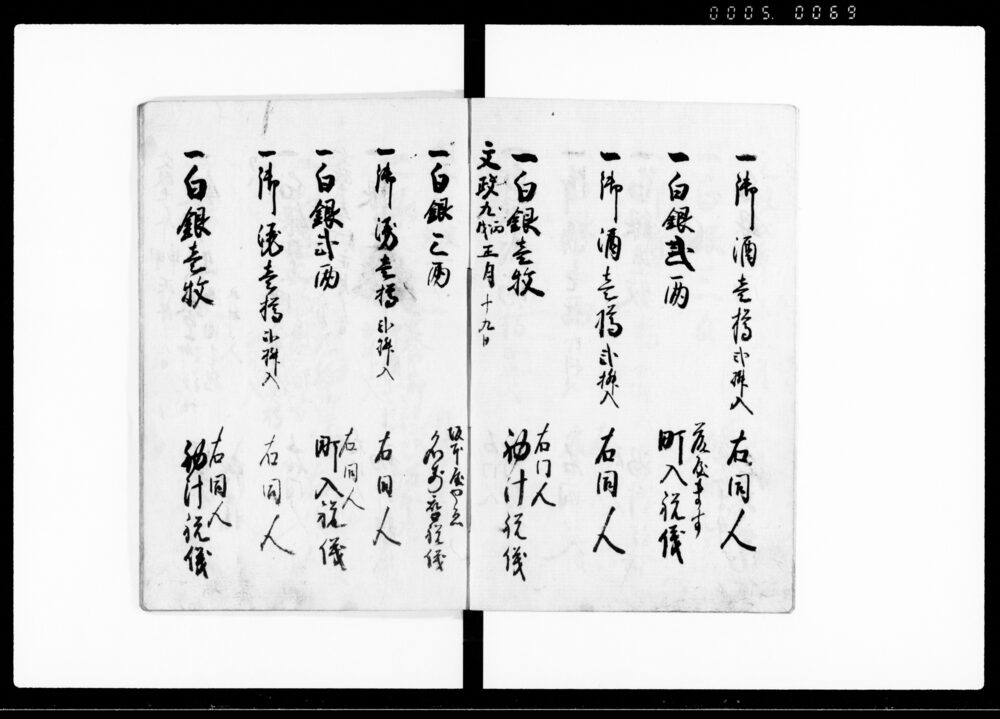 0005. 0069
一御酒壱樽 弐拾入 右同人
一白銀弐両 町入祝儀
一御酒壱樽 弐拾入 右同人
一白銀壱枚 右同人 初汁祝儀
文政九丙戌五月十九日
一白銀三両 祝儀
一御酒壱樽 弐拾入 右同人
一白銀弐両 右同人 町入祝儀
一御酒壱樽 弐拾入 右同人
一白銀壱枚 右同人 初汁祝儀